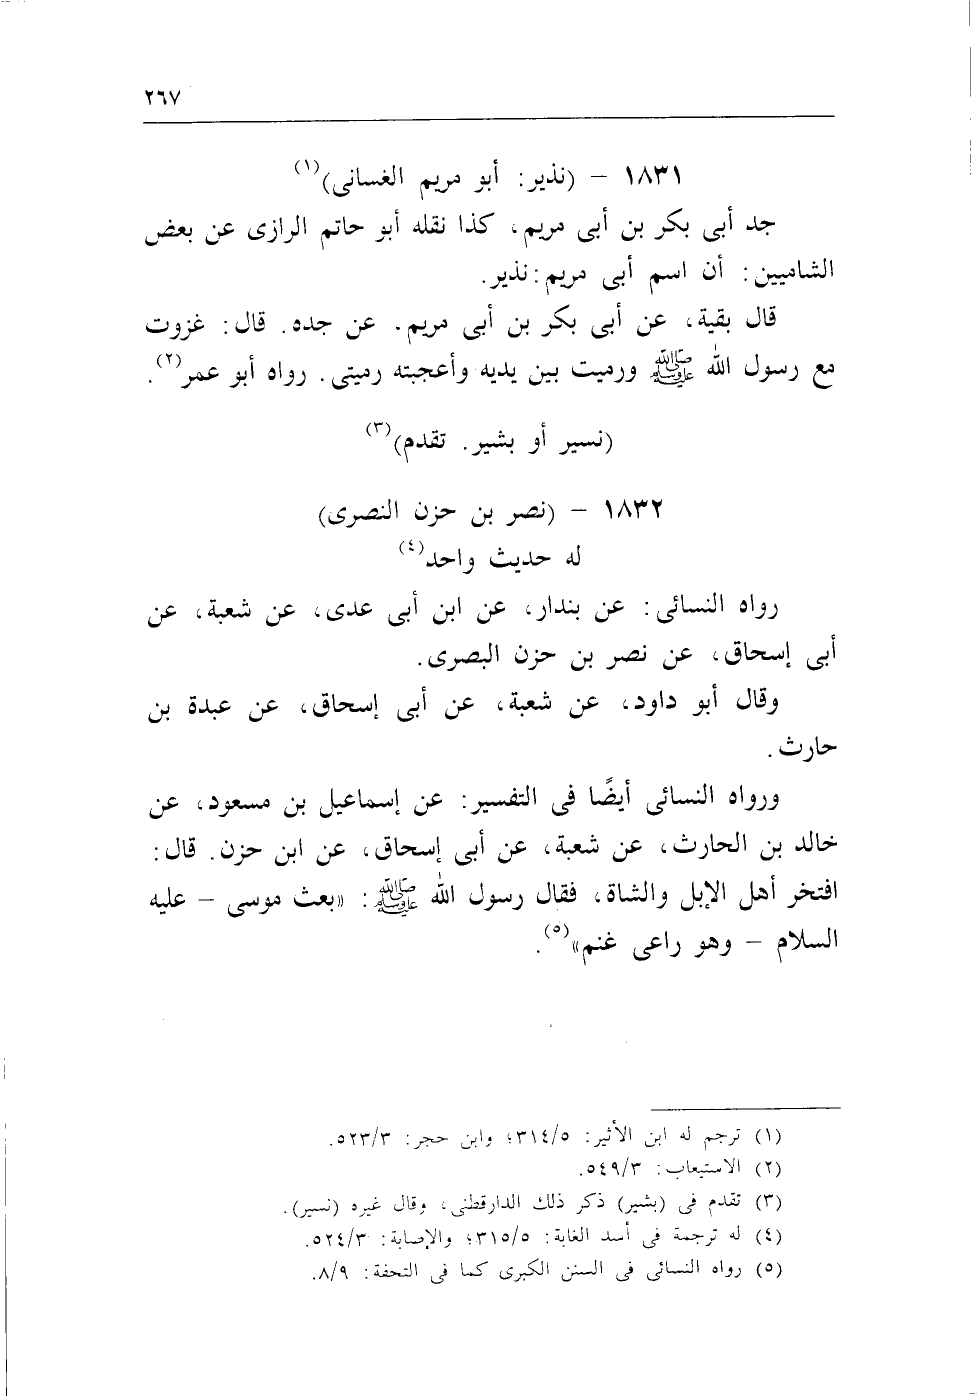 ٢٦٧
١٨٣١ – (نذير: أبو مريم الغسانى)(١)
جد أبى بكر بن أبى مريم، كذا نقله أبو حاتم الرازى عن بعض
الشاميين: أن اسم أبى مريم: نذير.
قال بقية، عن أبى بكر بن أبى مريم. عن جده. قال: غزوت
مع رسول الله ﷺ ورميت بين يديه وأعجبته رميتى. رواه أبو عمر(٢).
(نسير أو بشير. تقدم)(٣)
١٨٣٢ – (نصر بن حزن النصرى)
له حديث واحد(٤)
رواه النسائى: عن بندار، عن ابن أبى عدى، عن شعبة، عن
أبى إسحاق، عن نصر بن حزن البصرى.
وقال أبو داود، عن شعبة، عن أبى إسحاق، عن عبدة بن
حارث.
ورواه النسائى أيضًا فى التفسير: عن إسماعيل بن مسعود، عن
خالد بن الحارث، عن شعبة، عن أبى إسحاق، عن ابن حزن. قال:
افتخر أهل الإبل والشاة، فقال رسول الله ﷺ: «بعث موسى – عليه
السلام – وهو راعى غنم»(٥).
(١) ترجم له ابن الأثير: ٣١٤/٥؛ وابن حجر: ٥٢٣/٣.
(٢) الاستيعاب: ٥٤٩/٣.
(٣) تقدم فى (بشير) ذكر ذلك الدارقطنى، وقال غيره (نسير).
(٤) له ترجمة فى أسد الغابة: ٣١٥/٥؛ والإصابة: ٥٢٤/٣.
(٥) رواه النسائى فى السنن الكبرى كما فى التحفة: ٨/٩.